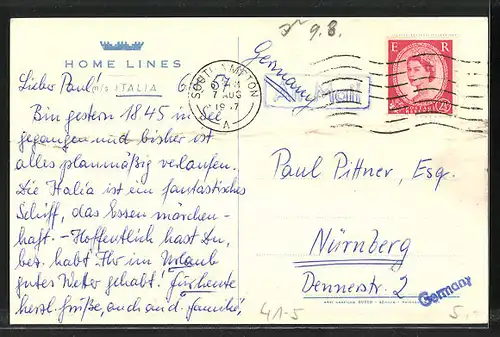 HOME LINES
m/s ITALIA
Lieber Paul!
Bin gestern 1845 in See
gegangen und bisher ist
alles planmäßig verlaufen.
Die Italia ist ein fantastisches
Schiff, das Essen märchen-
haft. - Hoffentlich hast Du,
bez. habt Ihr im Urlaub
gutes Wetter gehabt! Für heute
herzl. Grüße, auch an d. Familie,
9.8.
Germany
Air Mail
SOUTHAMPTON
7 AUG
A
E R
Paul Pittner, Esq.
Nürnberg
Dennerstr. 2
Germany
41-5
5.-